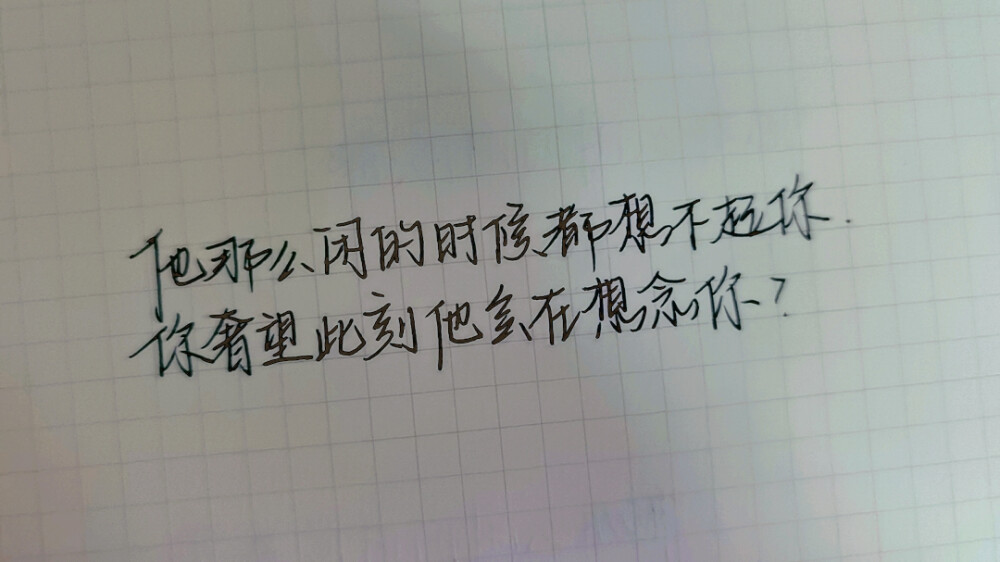 他那么闲的时候都想不起你.
你奢望此刻他会在想念你?